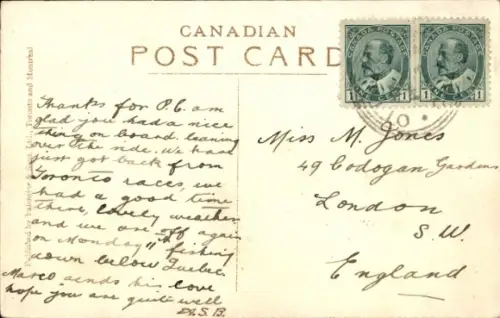 CANADIAN
POST CARD
CANADA POSTAGE
CANADA POSTAGE
1 1 1 1
Thanks for P.C. am
glad you had a nice
thing on board. leaning
over the side. We have
just got back from
Toronto races, we
had a good time
there, lovely weather
and we are off again
on Monday 11th fishing
down below Quebec
Marco sends his love
hope you are quite well
Miss M. Jones
49 Codogan Gardens
London
S.W.
England
Toronto and Montreal